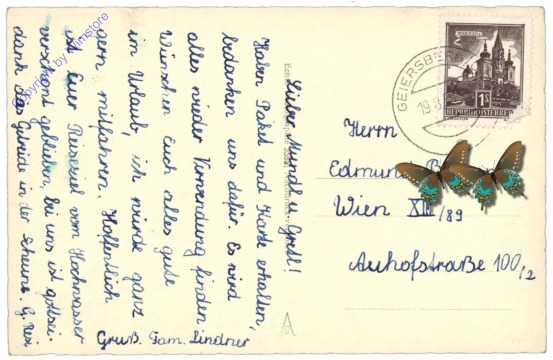 Lieber Mundl u. Gretl!
Haben Paket und Karte erhalten,
bedanken uns dafür. Es wird
alles wieder Verwendung finden
Wünschen Euch alles gute
im Urlaub, ich würde ganz
gern mitfahren. Hoffentlich
ist Euer Reiseziel vom Hochwasser
verschont geblieben, bei uns ist gottsei-
dank das Getreide in der Scheune. G. Resi
Gruß. Fam. Lindner
GEIERSB
19.8
MARIAZELL
1S
REPUBLIK ÖSTERREICH
Herrn
Edmund
Wien XIII/89
Auhofstraße 100/2
Copyright by Wimstore